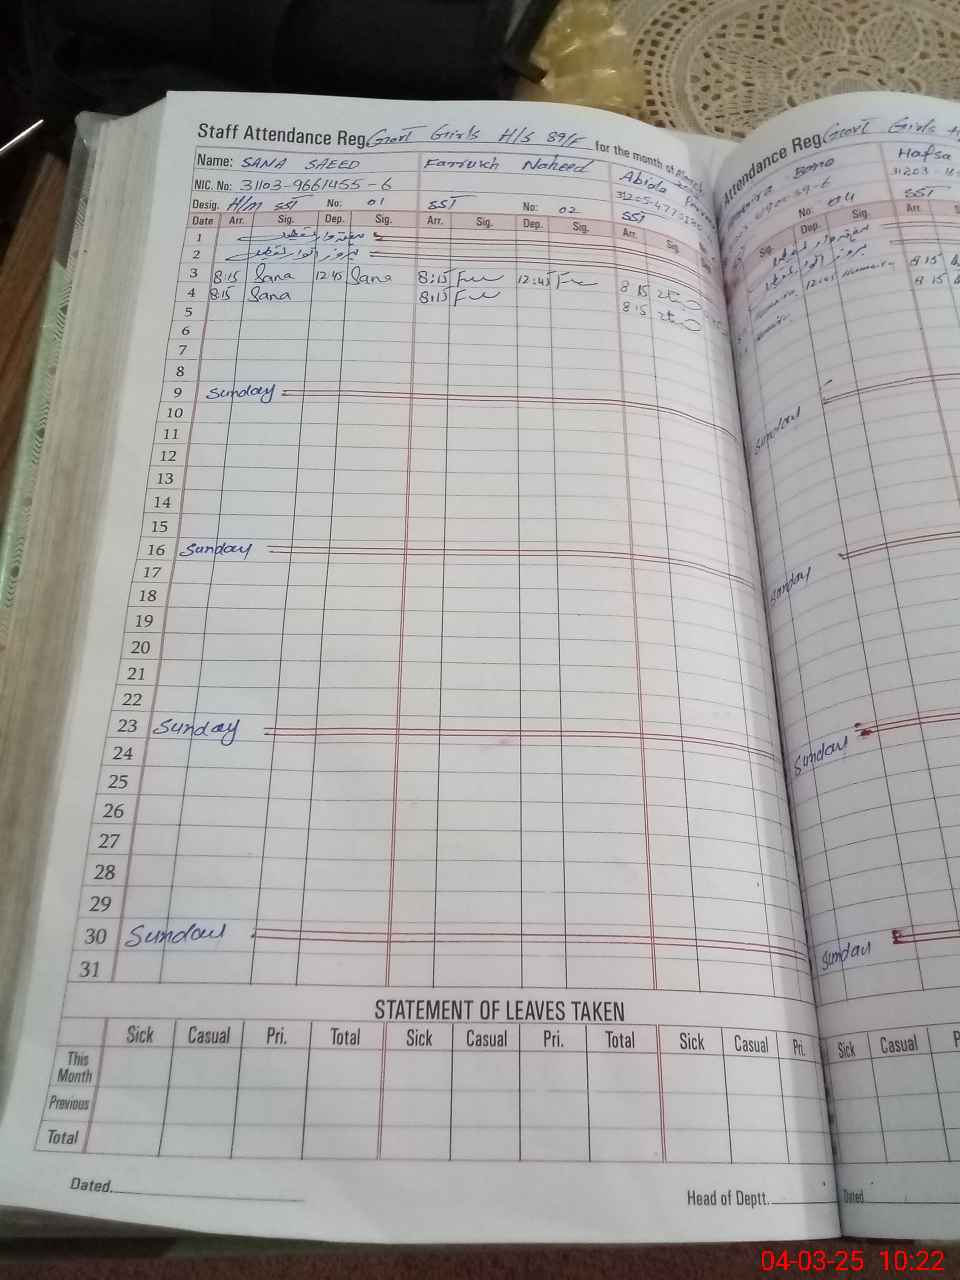 Staff Attendance Reg. Govt Girls H/S 89/F for the month of March
Name: SANA SAEED Farrukh Naheed Abida
NIC. No: 31103-9661455-6
Desig. H/m SST No: 01 SST No: 02 SST
Date Arr. Sig. Dep. Sig. Arr. Sig. Dep. Sig. Arr. Sig.
1
2
3 8:15 Sana 12:45 Sana 8:15 12:45 8 15
4 8:15 Sana 8:15 8:15
5
6
7
8
9 Sunday
10
11
12
13
14
15
16 Sunday
17
18
19
20
21
22
23 Sunday
24
25
26
27
28
29
30 Sunday
31
STATEMENT OF LEAVES TAKEN
Sick Casual Pri. Total Sick Casual Pri. Total Sick Casual Pri.
This Month
Previous
Total
Dated. Head of Deptt.
Attendance Reg. Govt Girls
Hafsa
No: 04 SST
Sig. Dep. Sig. Arr.
12:45 8 15
8 15
Sunday
Sunday
Sunday
Sunday
Sick Casual
Dated
04-03-25 10:22